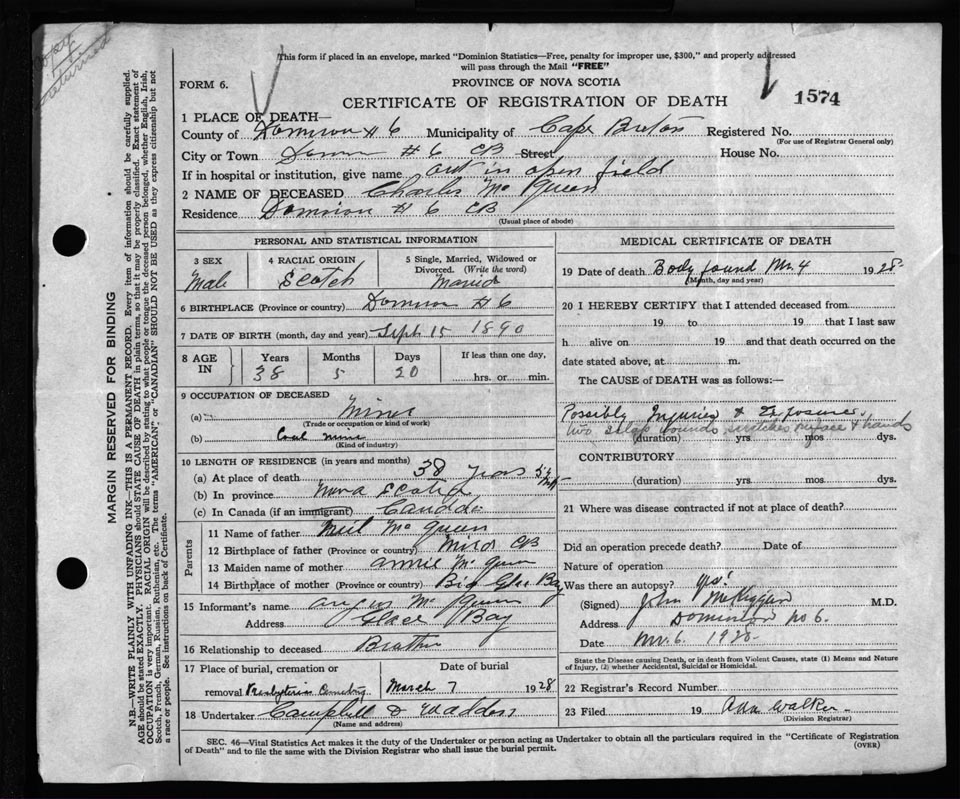 Copy
returned
This form if placed in an envelope, marked "Dominion Statistics—Free, penalty for improper use, $300," and properly addressed
will pass through the Mail "FREE"
FORM 6.
PROVINCE OF NOVA SCOTIA
CERTIFICATE OF REGISTRATION OF DEATH
1574
1 PLACE OF DEATH—
County of Dominion # 6 Municipality of Cape Breton Registered No.
(For use of Registrar General only)
City or Town Domin # 6 CB Street House No.
If in hospital or institution, give name out in open field
2 NAME OF DECEASED Charles Mc Queen
Residence Dominion # 6 CB
(Usual place of abode)
PERSONAL AND STATISTICAL INFORMATION
3 SEX Male
4 RACIAL ORIGIN Scotch
5 Single, Married, Widowed or Divorced. (Write the word) Married
6 BIRTHPLACE (Province or country) Dominion # 6
7 DATE OF BIRTH (month, day and year) Sept 15 1890
8 AGE IN Years 38 Months 5 Days 20 If less than one day, hrs. or min.
9 OCCUPATION OF DECEASED
(a) Miner
(Trade or occupation or kind of work)
(b) Coal mine
(Kind of industry)
10 LENGTH OF RESIDENCE (in years and months)
(a) At place of death 38 years
(b) In province Nova Scotia
(c) In Canada (if an immigrant) Canada
Parents
11 Name of father Neil Mc Queen
12 Birthplace of father (Province or country) Mira CB
13 Maiden name of mother Annie Mc Queen
14 Birthplace of mother (Province or country) Big Glace Bay
15 Informant's name Angus Mc Queen
Address Glace Bay
16 Relationship to deceased Brother
17 Place of burial, cremation or removal Presbyterian Cemetery
Date of burial March 7 1928
18 Undertaker Campbell & Madden
(Name and address)
MEDICAL CERTIFICATE OF DEATH
19 Date of death Body found Mr. 4 1928
(Month, day and year)
20 I HEREBY CERTIFY that I attended deceased from
19 to 19 that I last saw
h alive on 19 and that death occurred on the
date stated above, at m.
The CAUSE OF DEATH was as follows:—
Possibly Injuries & Exposure.
two scalp wounds scratches on face & hands
(duration) yrs. mos. dys.
CONTRIBUTORY
(duration) yrs. mos. dys.
21 Where was disease contracted if not at place of death?
Did an operation precede death? Date of
Nature of operation
Was there an autopsy? Yes.
(Signed) John M.D.
Address Dominion No 6.
Date Mr. 6. 1928
State the Disease causing Death, or in death from Violent Causes, state (1) Means and Nature
of Injury, (2) whether Accidental, Suicidal or Homicidal.
22 Registrar's Record Number
23 Filed 19 Ann Walker
(Division Registrar)
SEC. 46—Vital Statistics Act makes it the duty of the Undertaker or person acting as Undertaker to obtain all the particulars required in the "Certificate of Registration
of Death" and to file the same with the Division Registrar who shall issue the burial permit.
(OVER)
MARGIN RESERVED FOR BINDING
N.B.—WRITE PLAINLY WITH UNFADING INK—THIS IS A PERMANENT RECORD. Every item of information should be carefully supplied.
AGE should be stated EXACTLY. PHYSICIANS should STATE CAUSE OF DEATH in plain terms, so that it may be properly classified. Exact statement of
OCCUPATION is very important. RACIAL ORIGIN will be described by stating to what people or tongue the deceased person belonged, whether English, Irish,
Scotch, French, German, Russian, Ruthenian, etc. The terms "AMERICAN" or "CANADIAN" SHOULD NOT BE USED as they express citizenship but not
a race or people. See instructions on back of Certificate.